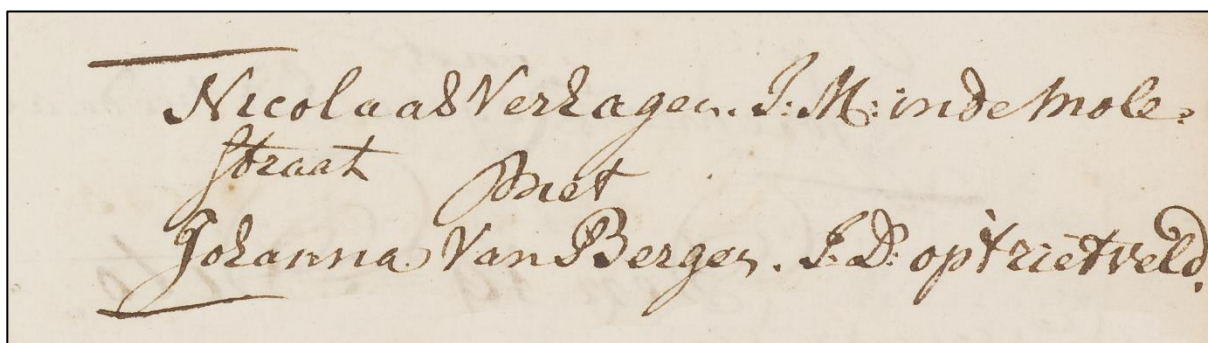 Nicolaas Verhagen. J: M: in de Mole=
straat met
Johanna Van Bergen. J: D: op 't rietveld.